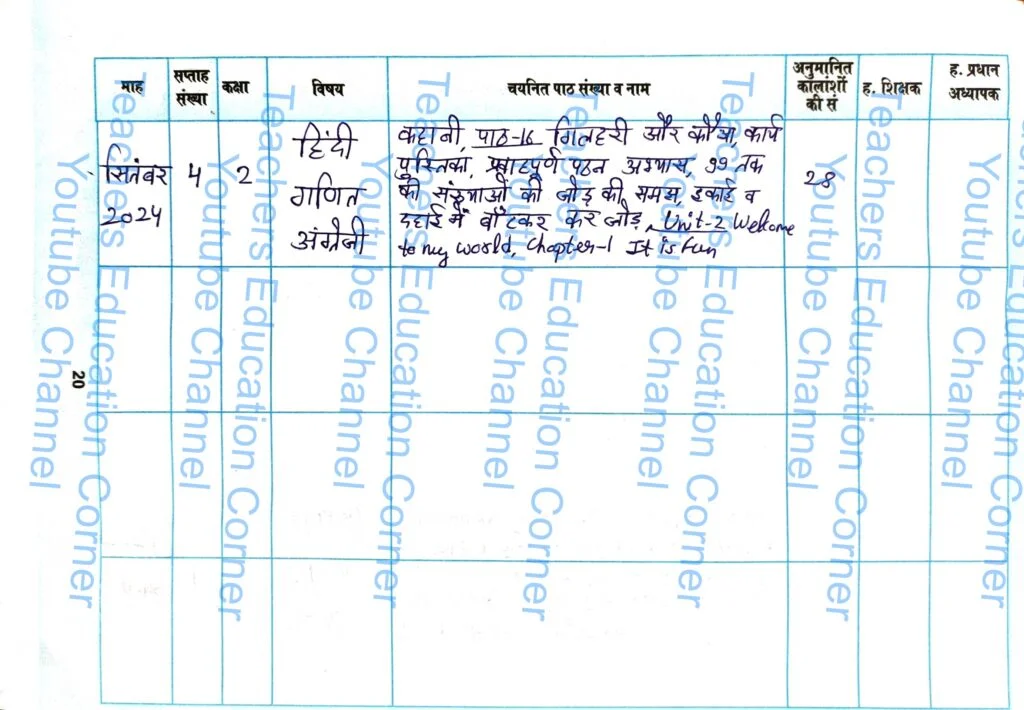 माह
सप्ताह
संख्या
कक्षा
विषय
चयनित पाठ संख्या व नाम
अनुमानित
कालांशों
की सं
ह. शिक्षक
ह. प्रधान
अध्यापक
सितंबर
2024
4
2
हिंदी
गणित
अंग्रेजी
कहानी, पाठ-16 गिलहरी और कौआ, कार्य
पुस्तिका, प्रवाहपूर्ण पठन अभ्यास, 99 तक
की संख्याओं की जोड़ की समझ, इकाई व
दहाई में बाँटकर कर जोड़, Unit-2 Welcome
to my world, Chapter-1 It is Fun
28
20
Teachers Education Corner
Youtube Channel
Teachers Education Corner
Youtube Channel
Teachers Education Corner
Youtube Channel
Teachers Education Corner
Youtube Channel
Teachers Education Corner
Youtube Channel
Teachers Education Corner
Youtube Channel
Teachers Education Corner
Youtube Channel